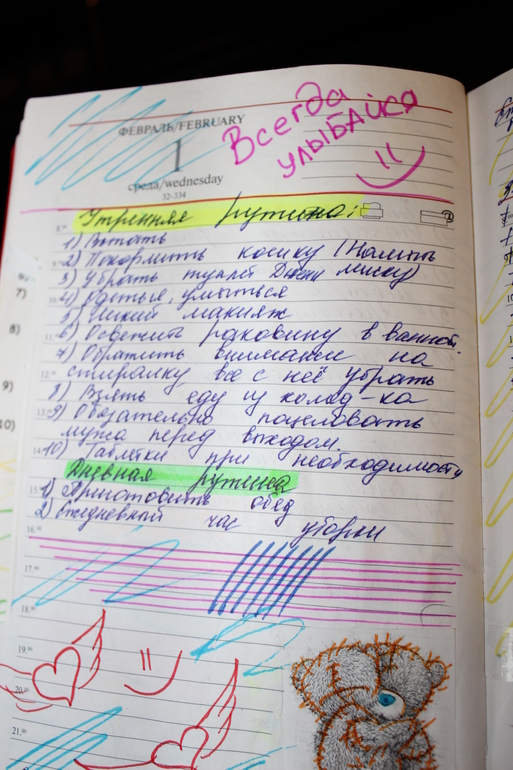 ФЕВРАЛЬ/FEBRUARY
1
среда/wednesday
32-334
Всегда
улыбайся
Утренняя рутина:
1) Встать
2) Покормить косику (Помыть
3) Убрать туалет миску)
4) Одеться, умыться
5) Лёгкий макияж
6) Освежить раковину в ванной.
7) Обратить внимание на
стиралку все с неё убрать
8) Взять еду из холод-ка
9) Обязательно поцеловать
мужа перед выходом
10) Таблетки при необходимости
Дневная рутина
1) Приготовить обед
2) Ежедневный час уборки
16.00
17.00
18.00
19.00
20.00
21.00
7)
8)
9)
10)